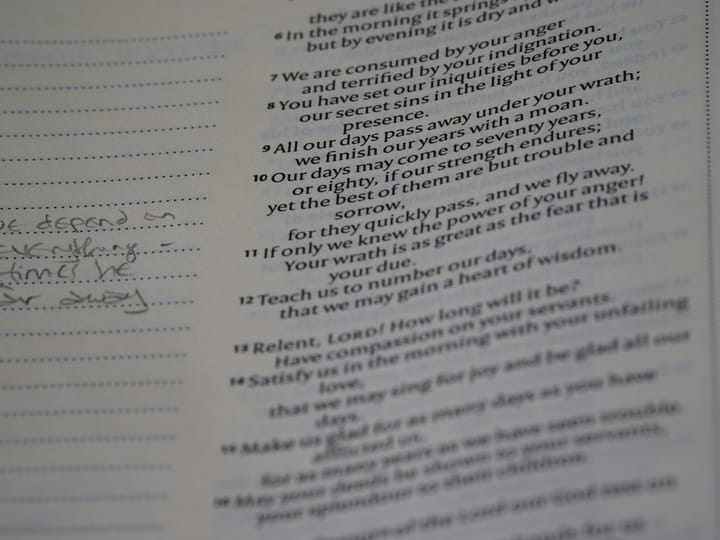 depend on
everything -
times he
away
they are like the
6 In the morning it springs
but by evening it is dry and
7 We are consumed by your anger
and terrified by your indignation.
8 You have set our iniquities before you,
our secret sins in the light of your
presence.
9 All our days pass away under your wrath;
we finish our years with a moan.
10 Our days may come to seventy years,
or eighty, if our strength endures;
yet the best of them are but trouble and
sorrow,
for they quickly pass, and we fly away.
11 If only we knew the power of your anger!
Your wrath is as great as the fear that is
your due.
12 Teach us to number our days,
that we may gain a heart of wisdom.
13 Relent, LORD! How long will it be?
Have compassion on your servants.
14 Satisfy us in the morning with your unfailing
love,
that we may sing for joy and be glad all our
days.
15 Make us glad for as many days as you have
afflicted us,
for as many years as we have seen trouble.
16 May your deeds be shown to your servants,
your splendour to their children.
of the Lord our God rest on